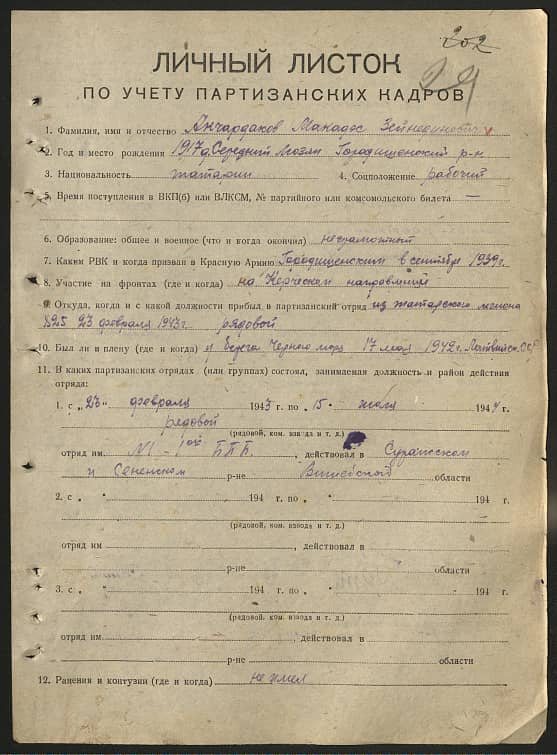 202
29
ЛИЧНЫЙ ЛИСТОК
ПО УЧЕТУ ПАРТИЗАНСКИХ КАДРОВ
1. Фамилия, имя и отчество Анчардаков Макадас Зейнединович
2. Год и место рождения 1917 г. Середний Городищенский р-н
3. Национальность татарин 4. Соцположение рабочий
5. Время поступления в ВКП(б) или ВЛКСМ, № партийного или комсомольского билета —
6. Образование: общее и военное (что и когда окончил) неграмотный
7. Каким РВК и когда призван в Красную Армию Городищенским в сентябре 1939 г.
8. Участие на фронтах (где и когда) на Керческом направлении
9. Откуда, когда и с какой должности прибыл в партизанский отряд из татарского легиона
825 23 февраля 1943 г. рядовой
10. Был ли в плену (где и когда) у берега Черного моря 17 мая 1942 г.
11. В каких партизанских отрядах (или группах) состоял, занимаемая должность и район действия
отряда:
1. с „23" февраля 1943 г. по „15" июля 1944 г.
рядовой
(рядовой, ком. взвода и т. д.)
отряд им №1 – 1ой БПБ, действовал в Суражском
и Сенненском р-не Витебской области
2. с „ " 194 г. по „ " 194 г.
(рядовой, ком. взвода и т. д.)
отряд им , действовал в
р-не области
3. с „ " 194 г. по „ " 194 г.
(рядовой, ком. взвода и т. д.)
отряд им. действовал в
р-не области
12. Ранения и контузии (где и когда) не имел